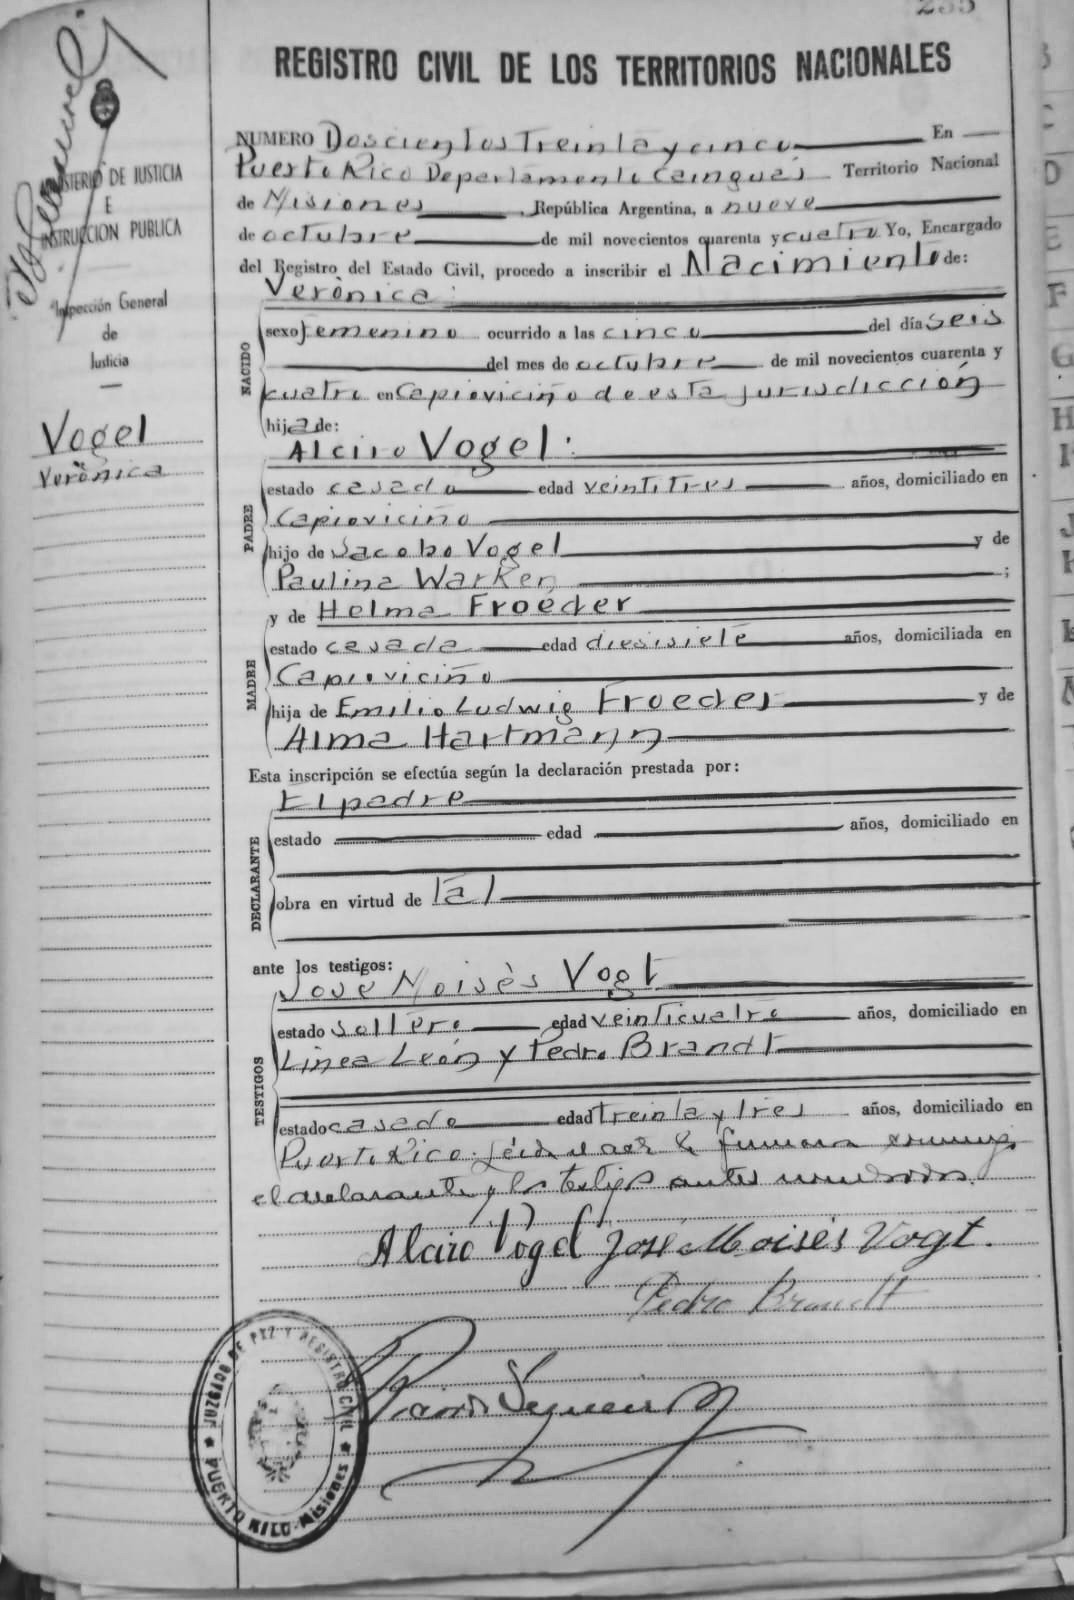 235
REGISTRO CIVIL DE LOS TERRITORIOS NACIONALES
NUMERO Doscientos treinta y cinco En
Puerto Rico Departamento Cainguás Territorio Nacional
de Misiones, República Argentina, a nueve
de octubre de mil novecientos cuarenta y cuatro Yo, Encargado
del Registro del Estado Civil, procedo a inscribir el Nacimiento de:
Verònica:
NACIDO
sexo femenino ocurrido a las cinco del día seis
del mes de octubre de mil novecientos cuarenta y
cuatro en Capioviciño de esta jurisdicción
hija de:
Alciro Vogel:
PADRE
estado casado edad veintitres años, domiciliado en
Capioviciño
hijo de Jacobo Vogel y de
Paulina Warken;
MADRE
y de Helma Froéder
estado casada edad diesisiete años, domiciliada en
Capioviciño
hija de Emilio Ludwig Froeder y de
Alma Hartmann
Esta inscripción se efectúa según la declaración prestada por:
DECLARANTE
El padre
estado edad años, domiciliado en
obra en virtud de tal
ante los testigos:
TESTIGOS
José Moisès Vogt
estado soltero edad veinticuatro años, domiciliado en
Linea León y Pedro Brandt
estado casado edad treinta y tres años, domiciliado en
Puerto Rico. Leída el acta la firmaron conmigo
el declarante y los testigos antes nombrados.
Alciro Vogel José Moisés Vogt.
Pedro Brandt
JUZGADO DE PAZ Y REGISTRO CIVIL
PUERTO RICO - Misiones
MINISTERIO DE JUSTICIA
E
INSTRUCCION PUBLICA
Inspección General
de
Justicia
Vogel
Verònica